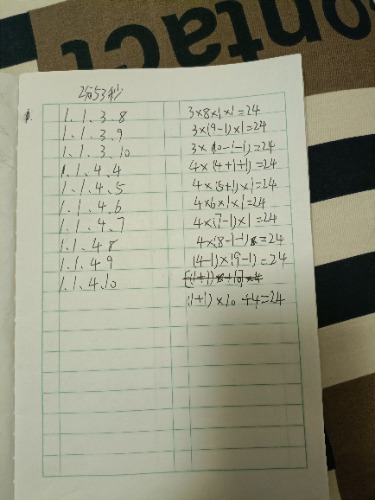 contact
2分53秒
1.1.3.8 3×8×1×1=24
1.1.3.9 3×(9-1)×1=24
1.1.3.10 3×(10-1-1)=24
1.1.4.4 4×(4+1+1)=24
1.1.4.5 4×(5+1)×1=24
1.1.4.6 4×6×1×1=24
1.1.4.7 4×(7-1)×1=24
1.1.4.8 4×(8-1-1)=24
1.1.4.9 (4-1)×(9-1)=24
1.1.4.10
(1+1)×10+4=24